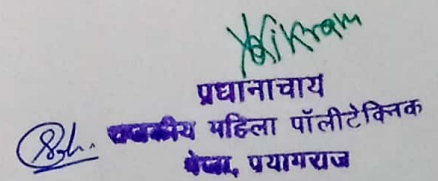 प्रधानाचार्य
राजकीय महिला पॉलीटेक्निक
मेजा, प्रयागराज